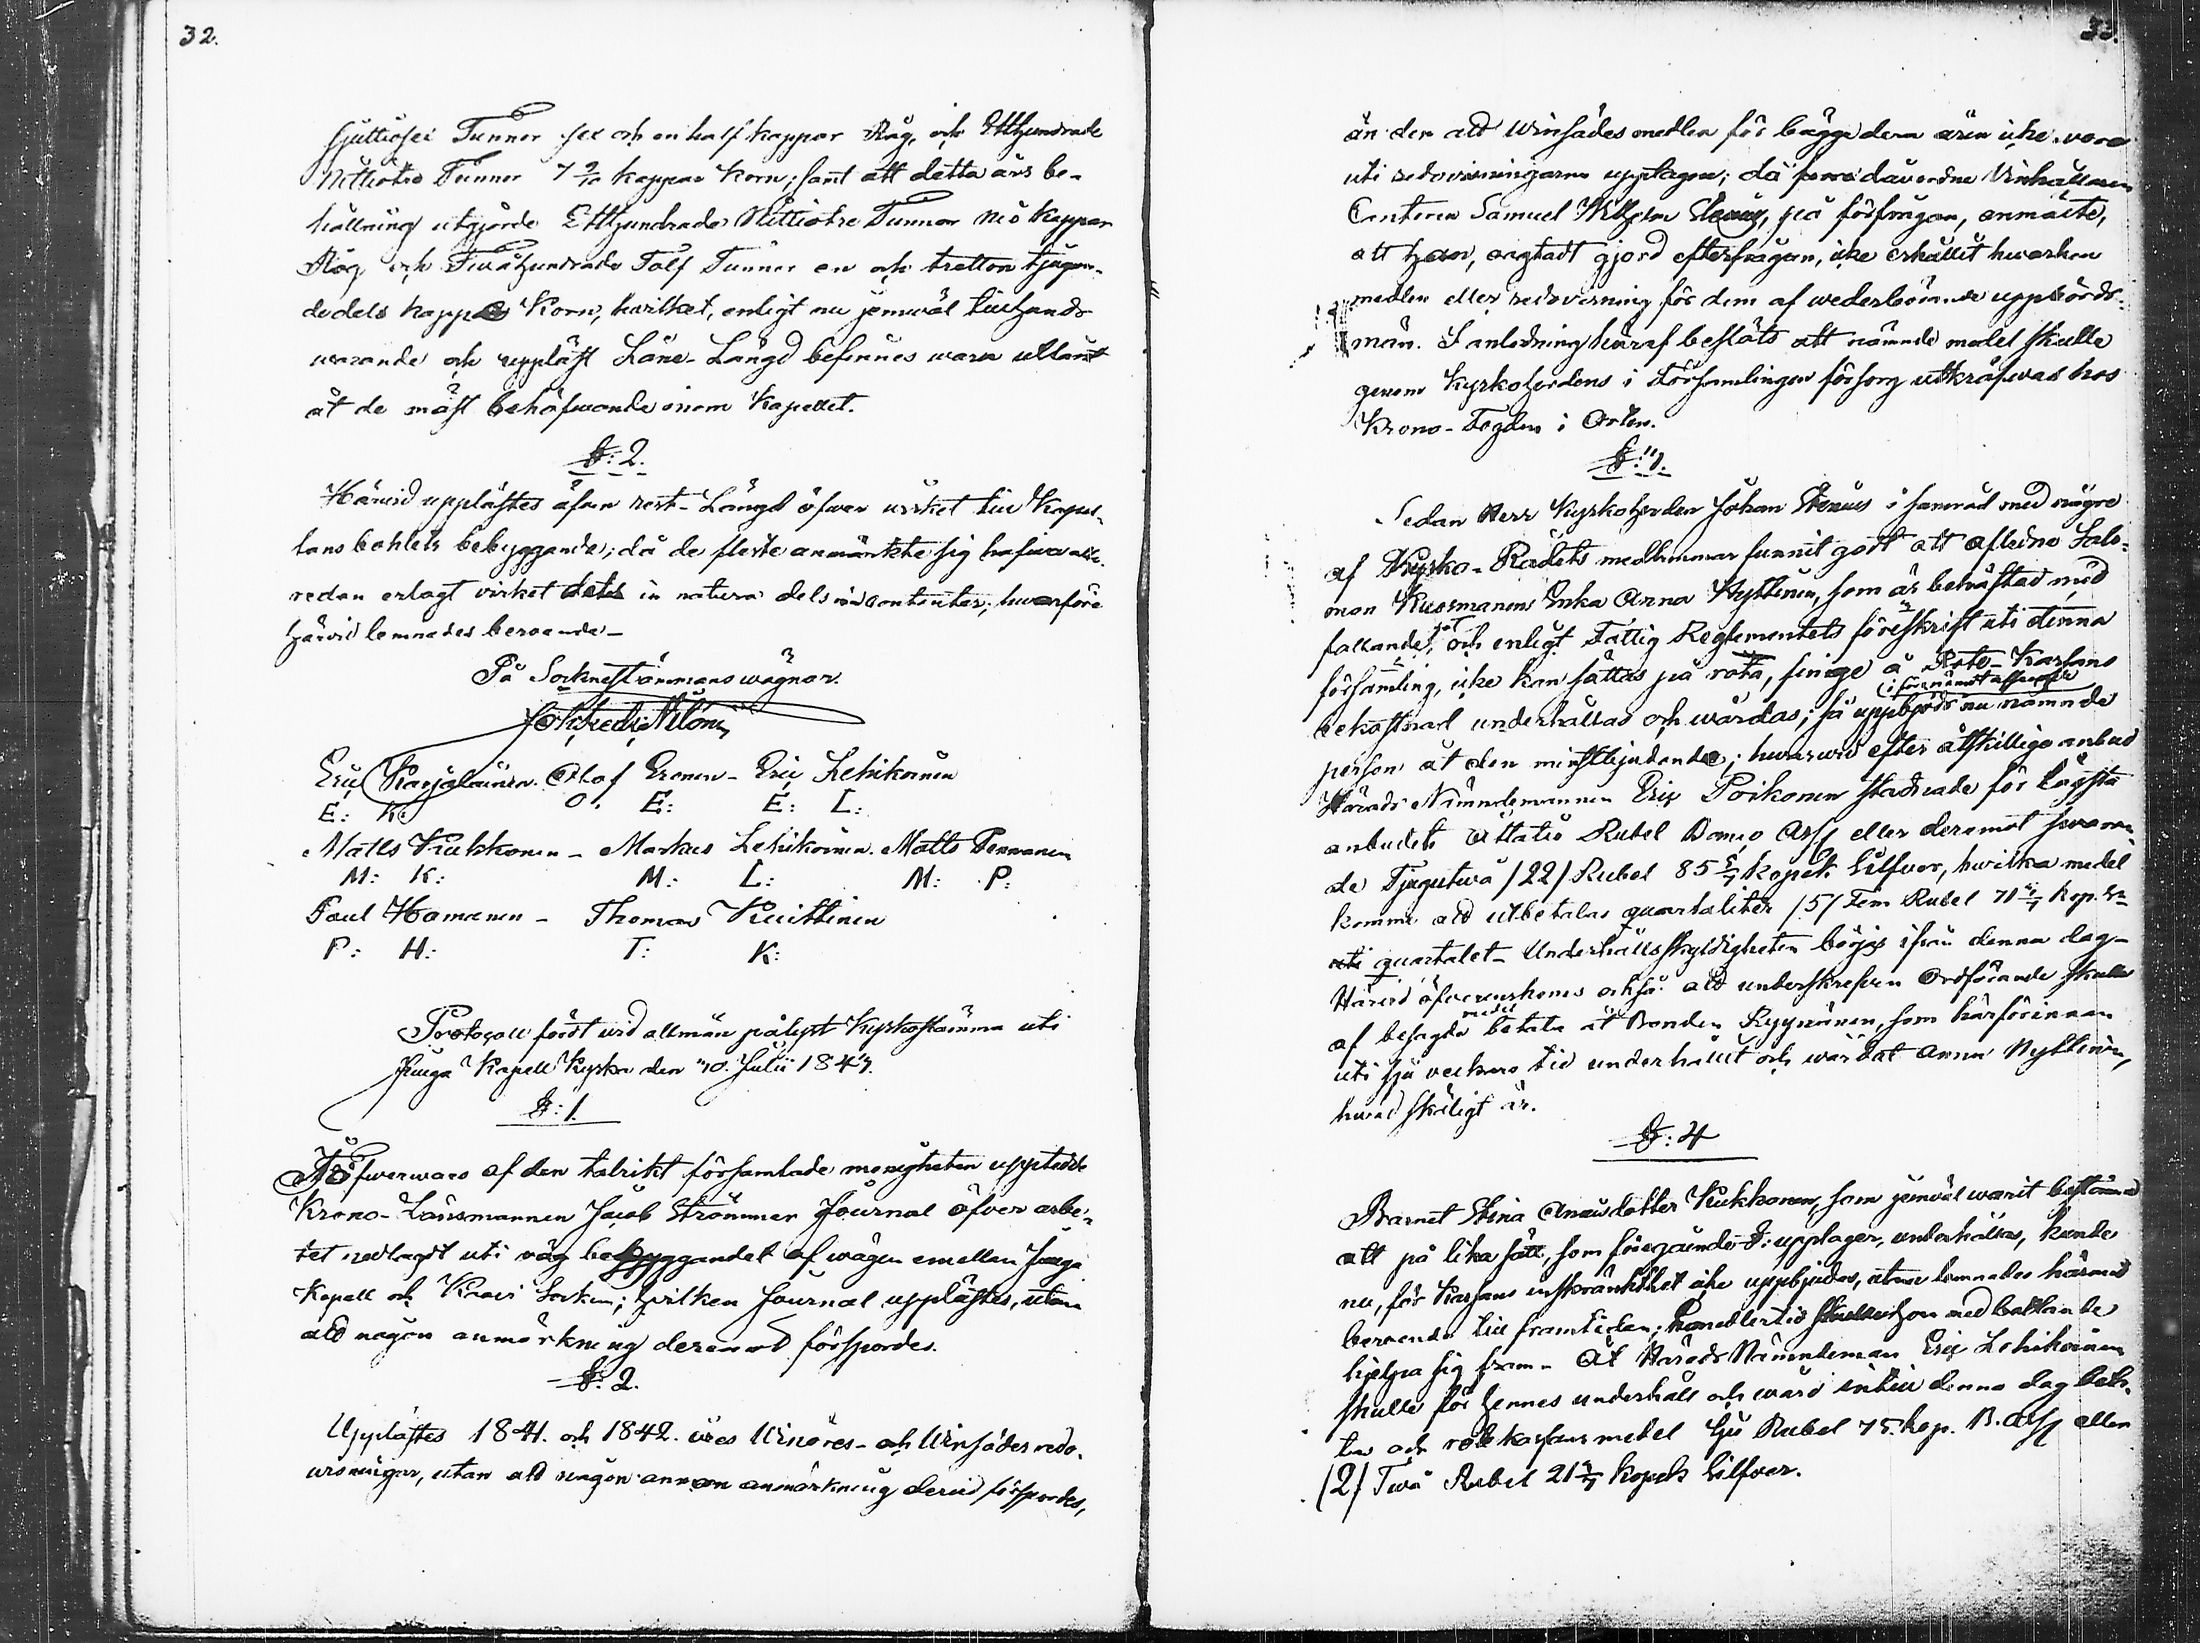 32.
Sjuttiosex Tunnor sex och en half kappar Råg, och Etthundrade
Nittiotre Tunnor 7 9/10 kappar Korn; samt att detta års be-
hållning utgjorde Etthundrade Nittiotre Tunnor Nio Kappar
Råg och Tvåhundrade Tolf Tunnor en och tretton tjugon-
dedels kappar Korn, hvilket, enligt nu jemwäl tillhands
warande och uppläst Låne-Längd befinnes wara utlånt
åt de mäst behöfwande inom Kapellet.
§: 2.
Härwid upplästes äfven rest-Längd öfwer wirket till Kapel-
lans bohlets bebyggande; då de fleste anmärkte sig hafwa alle-
redan erlagt virket dels in natura dels in contenter; hwarföre
härvid lemnades beroende-
På Socknestämmans wägnar.
Joh: Fredr: Nilon
Eric Karjalainen. Olof Eronen- Eric Lehikoinen
E: K: O. E: E: L:
Matts Kukkonen - Markus Lehikoinen. Matts Pennanen
M: K: M: L: M: P:
Paul Hamanen - Thomas Kuittinen
P: H: T: K:
Protocoll fördt wid allmän pålyst Kyrkostämma uti
Juuga Kapell Kyrka den 10. Julii 1843.
§: 1.
Närwaro af den talrikt församlade menigheten uppteddes
Krono-Länsmannen Jacob Strömmer Journal öfver arbe-
tet nedlagdt uti väg bebyggandet af wägen emellan Juuga
Kapell och Kaavi Socken; hvilken Journal upplästes, utan
att någon anmärkning deremot förspordes.
§: 2.
Upplästes 1841. och 1842. åres Winöres- och Winsädes redo-
wisningar, utan att någon annan anmärkning derwid förspordes,
33.
än den att Winsädes medlen för bägge dem åren icke voro
uti redovisningarne upptagne; då dåvarande Vinhållaren
Cantoren Samuel Wilhelm Stenius, på förfrågan, anmälte,
att han, oagtadt gjord efterfrågan, icke erhållit hwarken
medlen eller redovisning för dem af wederbörande uppbörds-
män. I anledning häraf beslöts att nämnde medel skulle
genom Kyrkoherdens i Församlingen försorg utkräfwas hos
Krono-Fogden i Orten.
§: 3.
Sedan Herr Kyrkoherden Johan Stenius i samråd med någre
af Kyrko-Rådets medlemmar funnit godt att aflidne Salo-
mon Kuosmanens Enka Anna Hyttinen, som är behäftad med
fallande sot, och enligt Fattig Reglementets föreskrift uti denna
församling, icke kan sättas på rota, finge å Rote-Kassans
bekostnad underhållas och wårdas; så uppbjöds nu nämnde
person åt den minstbjudande; hwarwid efter åtskillige anbud
Härads Nämndemannen Eric Poikonen stadnade för lägsta
anbudet Åttatio Rubel Banco Ass eller deremot svaran-
de Tjugutvå /22/ Rubel 85 5/7 kopek Silfver, hwilka medel
komma att utbetalas quartaliter /5/ Fem Rubel 71 3/7 kop. Sr
quartalet- Underhållsskyldigheten börjas ifrån denna dag-
Härvid öfverenskoms också att underskrefven Ordförande skulle
af besagde medel betala åt Bonden Ryynänen, som härförinnan
uti sju veckors tid underhållit och wårdat Anna Hyttinen,
hwad skäligt är.
§: 4
Barnet Stina Anrisdotter Kukkonen, som jemväl warit bestämd
att på lika sätt, som föregående §: upptager, underhållas, kunde
nu, för Kassans inskränkthet icke uppbjudas, utan lemnades härmed
beroende till framtiden; hon med bettlande
hjelpa sig fram- Åt Härads Nämndeman Eric Lehikoinen
skulle för hennes underhåll och wård intill denna dag beta-
las och rote kassans medel Sju Rubel 75. kop. B. Ass eller
/2/ Två Rubel 21 3/7 kopek Silfver.